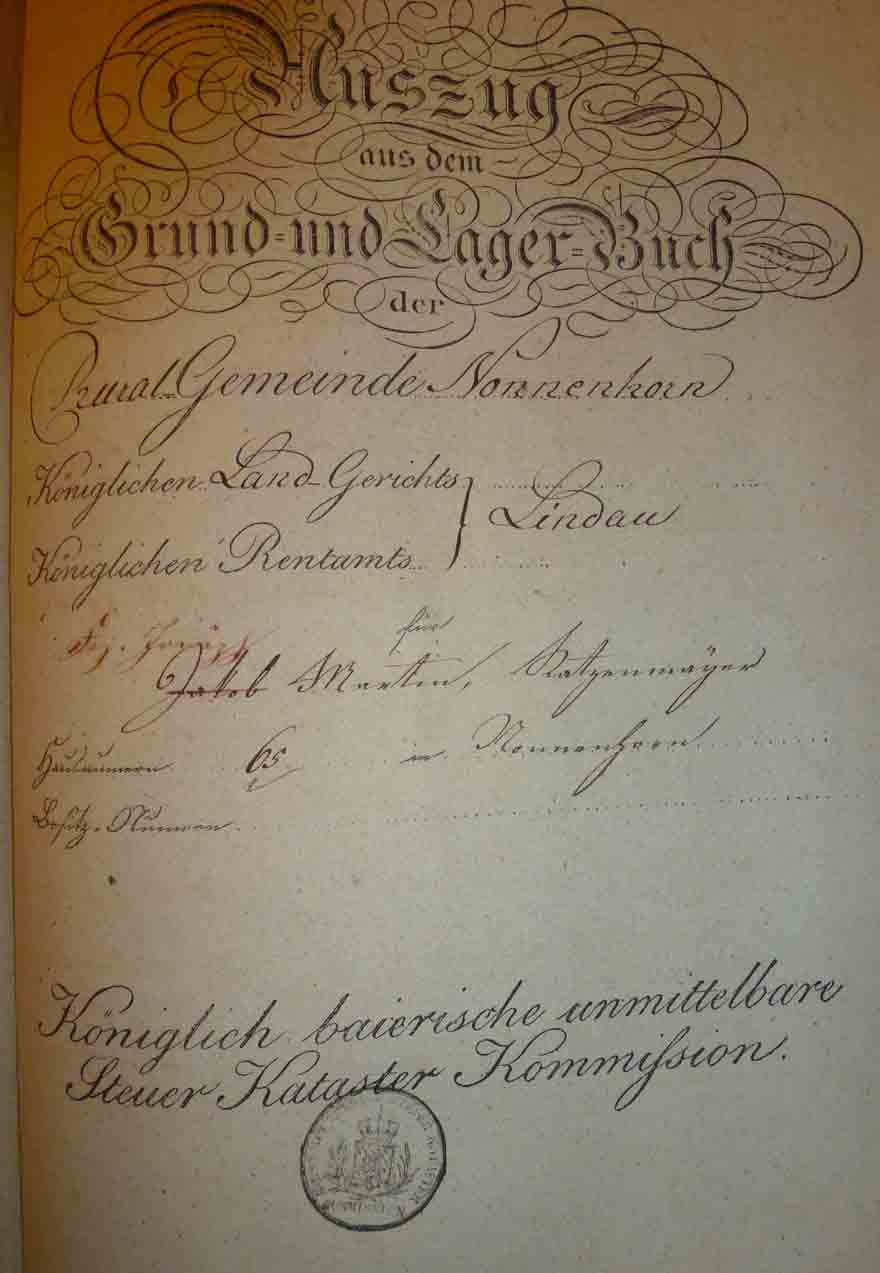 Auszug
aus dem
Grund-und Lager-Buch
der
Rural-Gemeinde Nonnenhorn
Königlichen Land-Gerichts
Lindau
Königlichen Rentamts
für
Jakob Martin, Katzenmayer
Hausnumern 65 in Nonnenhorn
Besitz-Numern
Königlich baierische unmittelbare
Steuer Kataster Kommißion.